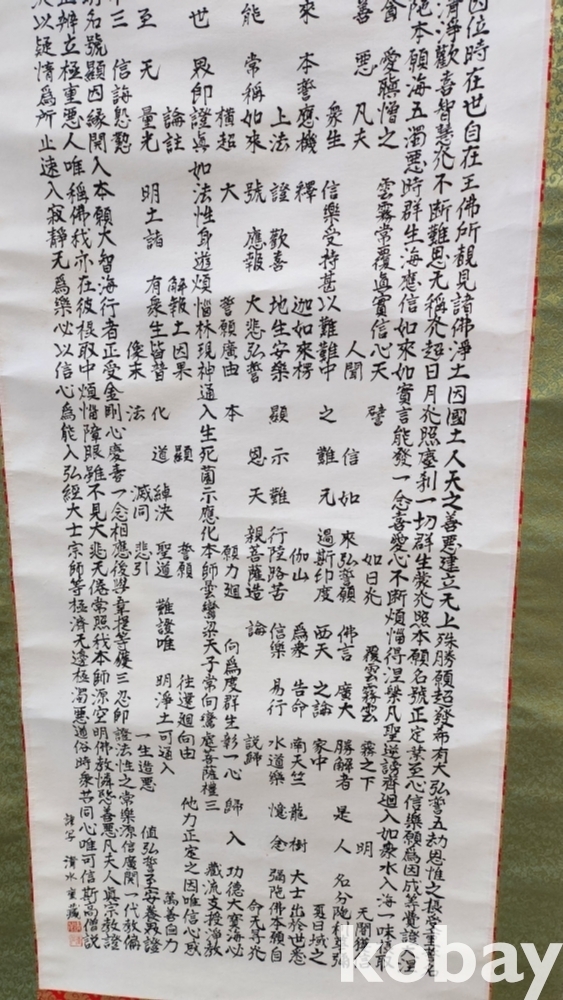 因位時在世自在王佛所覩見諸佛淨土因國土人天之善惡建立无上殊勝願超發希有大弘誓五劫思惟之攝受重誓名
清淨歡喜智慧光不斷難思无稱光超日月光照塵刹一切群生蒙光照本願名號正定業至心信樂願為因成等覺證大涅
陀本願海五濁惡時群生海應信如來如實言能發一念喜愛心不斷煩惱得涅槃凡聖逆謗齊廻入如衆水入海一味攝取
會 愛瞋憎之 雲霧常覆眞實信心天 譬 如日光 覆雲霧雲 霧之下 明 无闇獲信
善 惡 凡夫 人聞 信如 來弘誓願 佛言 廣大 勝解者 是人 名分陀利華彌
衆生 信樂受持甚以難難中 之難无 過斯印度 西天 之論 家中 夏日域之
來 本誓應機 釋 迦如來楞 伽山 為衆 告命 南天竺 龍樹 大士出於世悉
上法 證歡喜 地生安樂 顯示難 行陸路苦 信樂 易行 水道樂 憶念 彌陀佛本願自
能 常稱如來 號應報 大悲弘誓 恩天 親菩薩造 論 說歸 命无㝵光
横超 大 誓願廣由 本 願力廻 向為度群生彰一心 歸入 功德大寶海必
世 界即證眞如法性身遊煩惱林現神通入生死薗示應化本師曇鸞梁天子常向鸞處菩薩禮三 藏流支授淨教
論註 解報土因果 顯 誓願 往還廻向由 他力正定之因唯信心惑
至 无 量光 明土諸 有衆生皆普 化 道 綽決 聖道 難證唯 明淨土可通入 萬善自力
三 信誨慇懃 像末 法 滅同 悲引 一生造惡 值弘誓至安養界證
明名號顯因縁開入本願大智海行者正受金剛心慶喜一念相應後與韋提等獲三忍即證法性之常樂源信廣開一代教偏
辨立極重惡人唯稱佛我亦在彼攝取中煩惱障眼雖不見大悲无倦常照我本師源空明佛教憐愍善惡凡夫人眞宗教證
以疑情為所止速入寂靜无為樂必以信心為能入弘經大士宗師等拯濟无邊極濁惡道俗時衆共同心唯可信斯高僧說
謹写 清水
kobay